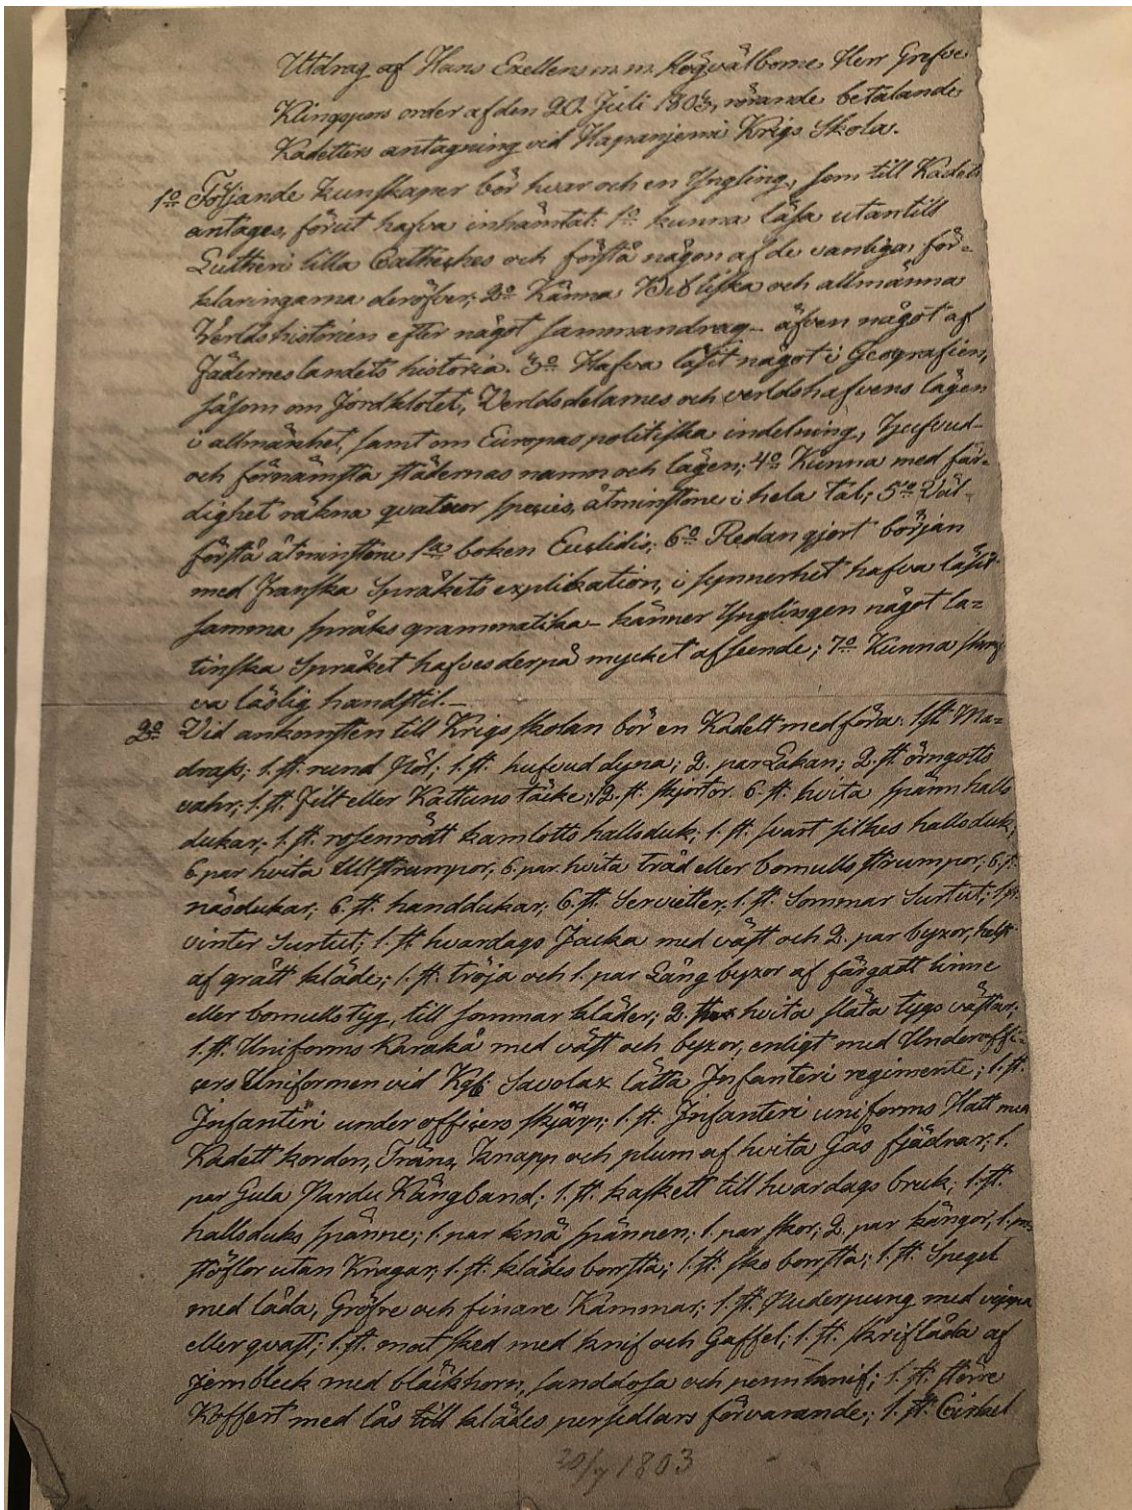 Utdrag af Hans Exellens m.m. Högvälborne Herr Grefve
Klingspors order af den 20. Juli 1803, rörande betalande
Kadetters antagning vid Hapanjemi Krigs Skola.
1º Följande kunskaper bör hvar och en Yngling, som till Kadett
antages, förut hafva inhämtat: 1º kunna läsa utantill
Lutheri lilla Catheches och förstå någon af de vanliga för-
klaringarna deröfver; 2º Känna Bibliska och allmänna
Verldshistorien efter något sammandrag – äfven något af
Fäderneslandets historia. 3º Hafva läsit något i Geografien,
såsom om Jordklotet, Verldsdelarnes och verldshafvens lägen
i allmänhet, samt om Europas politiska indelning, Hufvud-
och förnämsta städernas namn och lägen; 4º Kunna med fär-
dighet räkna quatuor species, åtminstone i hela tal; 5º Väl
förstå åtminstone 1ª boken Euclidis; 6º Redan gjort början
med Franska Språkets explikation, i synnerhet hafva läsit
samma språks grammatika – känner Ynglingen något la=
tinska Språket hafves derpå mycket afseende; 7º Kunna skrif
va läslig handstil. –
2º Vid ankomsten till Krigs skolan bör en Kadett medföra: 1 st. Ma=
drass; 1. st. rund Pöl; 1. st. hufvud dyna; 2. par Lakan; 2. st. örngotts
vahr; 1. st. Filt eller Kattuns täcke; 12. st. skjortor. 6. st. hvita spännhals
dukar; 1. st. rosenrödt kamlotts halsduk; 1. st. svart silkes halsduk;
6 par hvita Ullstrumpor, 6. par hvita tråd eller bomulls strumpor; 6. st.
näsdukar; 6. st. handdukar; 6. st. Servietter; 1. st. Sommar Surtut; 1. st.
vinter Surtut; 1. st. hvardags Jacka med väst och 2. par byxor, helst
af grått kläde; 1. st. tröja och 1. par Långbyxor af färgadt linne
eller bomulls tyg, till sommar kläder; 2. hvita släta tygs västar;
1. st. Uniforms Karaka med väst och byxor, enligt med Underoffi-
cers Uniformen vid Kgl. Savolax lätta Infanteri regimente; 1. st.
Infanteri under officers skjärp; 1. st. Infanteri uniforms Hatt med
Kadett kordon, Träns, Knapp och plum af hvita Gås fjädrar; 1.
par Gula Kängband; 1. st. kaskett till hvardags bruk; 1. st.
halsduks spänne; 1. par knä spännen; 1. par skor; 2. par kängor, 1. par
stöflor utan Kragar; 1. st. klädes borsta; 1. st. sko borsta; 1. st. Spegel
med låda, Gröfre och finare Kammar; 1. st. Puderpung med vippa
eller qvast; 1. st. mat sked med knif och Gaffel; 1. st. skriflåda af
jernbleck med bläckhorn, sanddosa och pennknif; 1. st. större
Koffert med lås till klädes persedlars förvarande; 1. st. Cirkel
20/7 1803